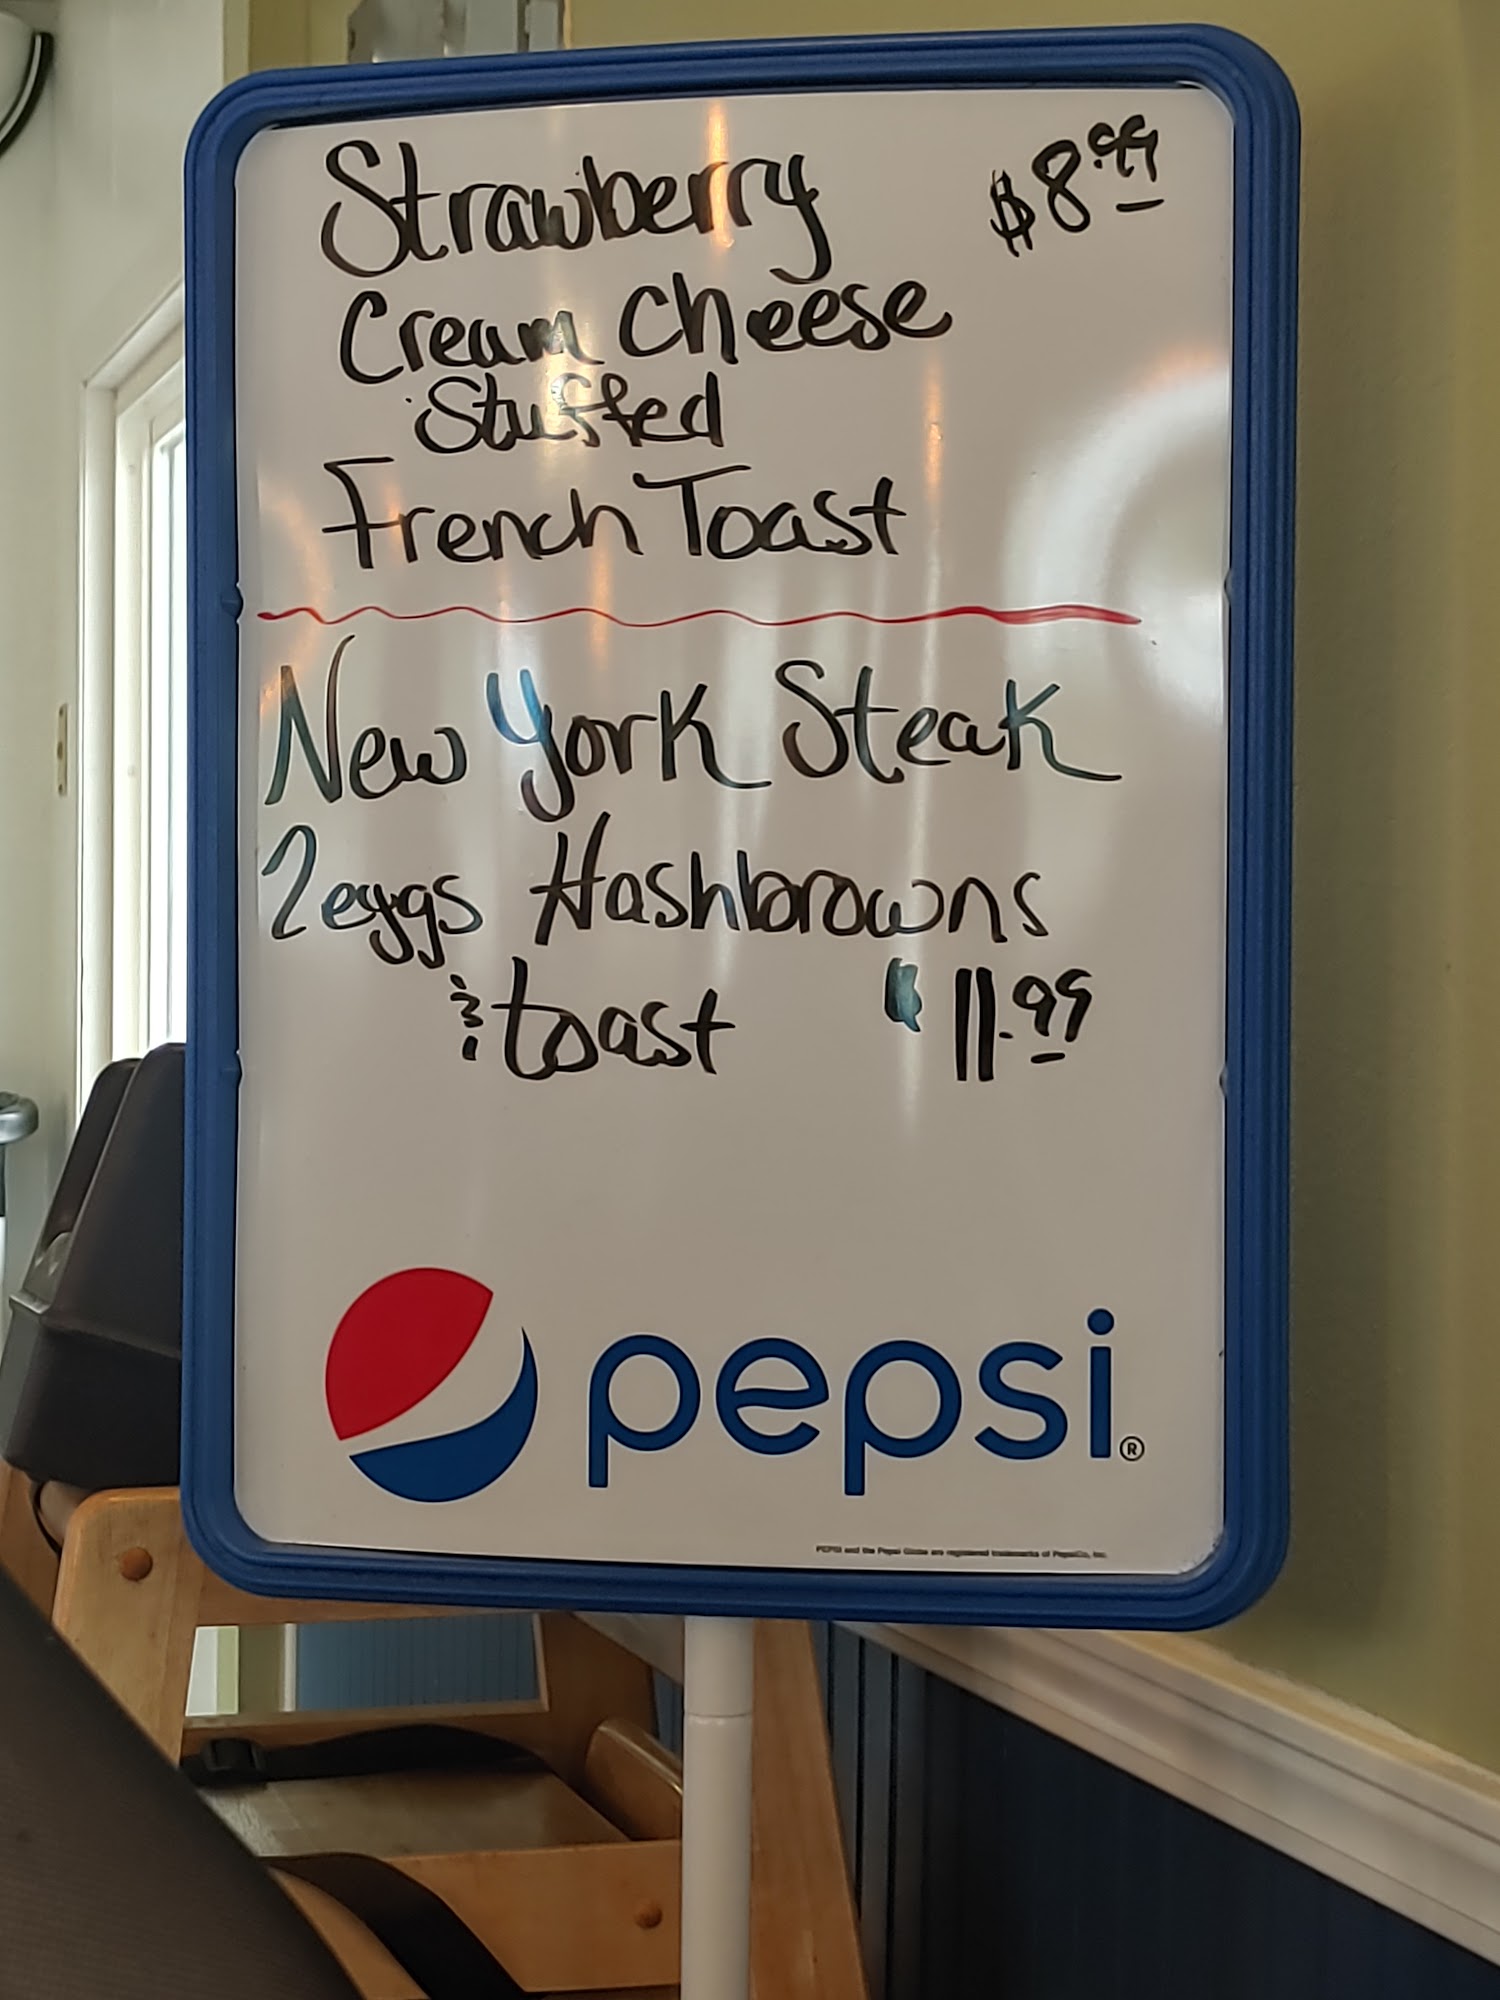 Strawberry $8.99
Cream Cheese
Stuffed
French Toast
New York Steak
2 eggs Hashbrowns
& toast $11.99
pepsi®
PEPSI and the Pepsi Globe are registered trademarks of PepsiCo, Inc.